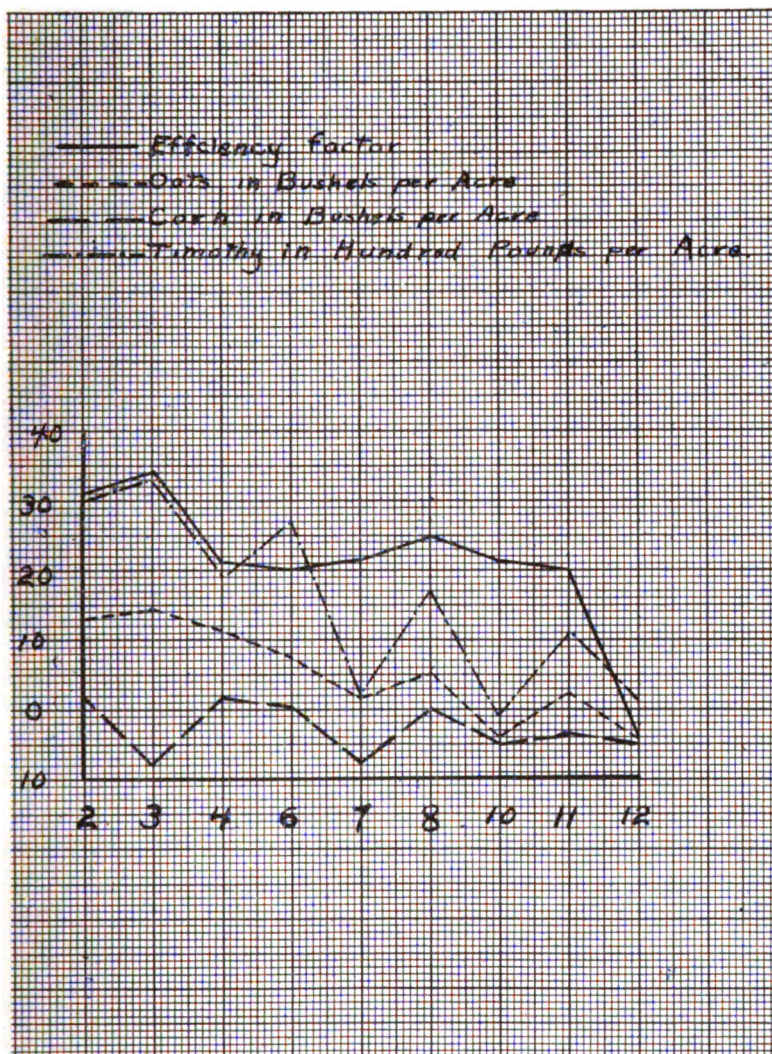 Effciency factor
Oats in Bushels per Acre
Corn in Bushels per Acre
Timothy in Hundred Pounds per Acre.
40
30
20
10
0
10
2 3 4 6 7 8 10 11 12